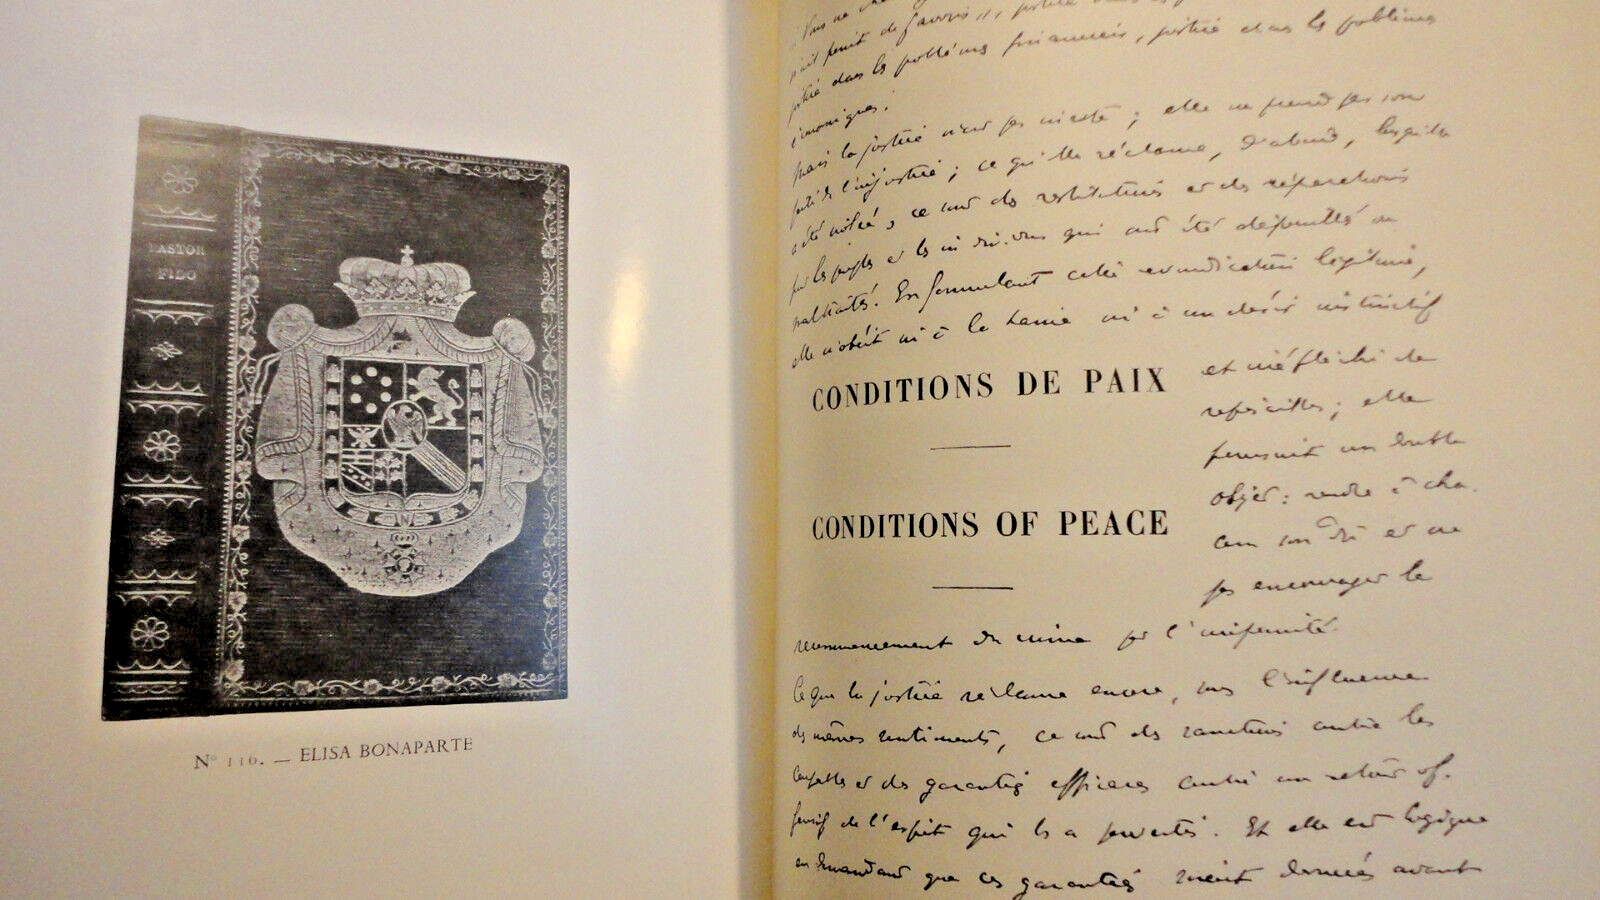 PASTOR
FIDO
N° 116. — ELISA BONAPARTE
n'ait point de favoris", justice dans
justice dans les problèmes financiers, justice dans les problèmes
économiques.
Mais la justice n'est pas inerte ; elle ne prend pas son
parti de l'injustice ; ce qu'elle réclame, d'abord, lorsqu'elle
a été violée, ce sont des restitutions et des réparations
pour les peuples et les individus qui ont été dépouillés ou
maltraités. En formulant cette revendication légitime,
elle n'obéit ni à la haine ni à un désir instinctif
et irréfléchi de
représailles ; elle
poursuit un double
objet : rendre à cha-
cun son dû et ne
pas encourager le
CONDITIONS DE PAIX
CONDITIONS OF PEACE
recommencement du crime par l'impunité.
Ce que la justice réclame encore, sous l'influence
des mêmes sentiments, ce sont des sanctions contre les
coupables et des garanties efficaces contre un retour of-
fensif de l'esprit qui les a pervertis. Et elle est logique
en demandant que ces garanties soient données avant